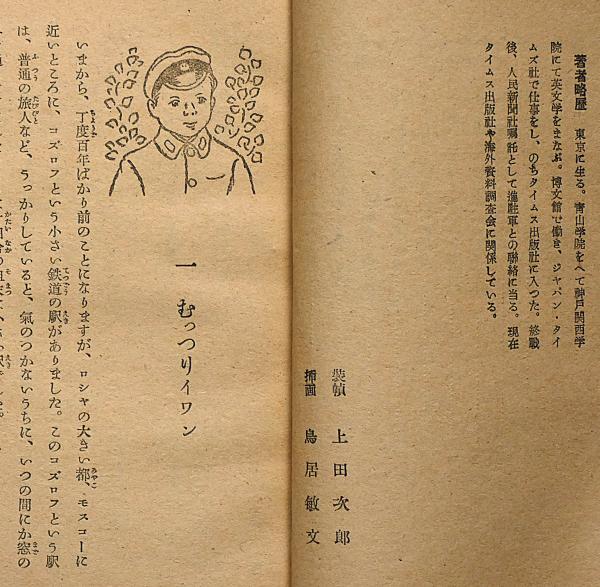 著者略歴　東京に生る。青山学院をへて神戸関西学
院にて英文学をまなぶ。博文館で働き、ジャパン・タイ
ムズ社で仕事をし、のちタイムス出版社に入つた。終戦
後、人民新聞社嘱託として進駐軍との聯絡に当る。現在
タイムス出版社や海外資料調査会に関係している。
装幀　上田次郎
挿画　鳥居敏文
一　むっつりイワン
いまから、丁度百年ばかり前のことになりますが、ロシヤの大きい都、モスコーに
近いところに、コズロフという小さい鉄道の駅がありました。このコズロフという駅
は、普通の旅人など、うっかりしていると、氣のつかないうちに、いつの間にか窓の